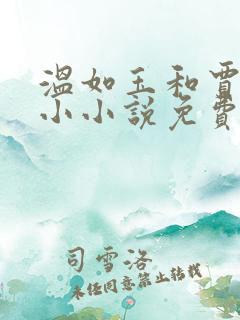 溫如玉和賈
小小說免費
司雪洛
未经同意禁止转载